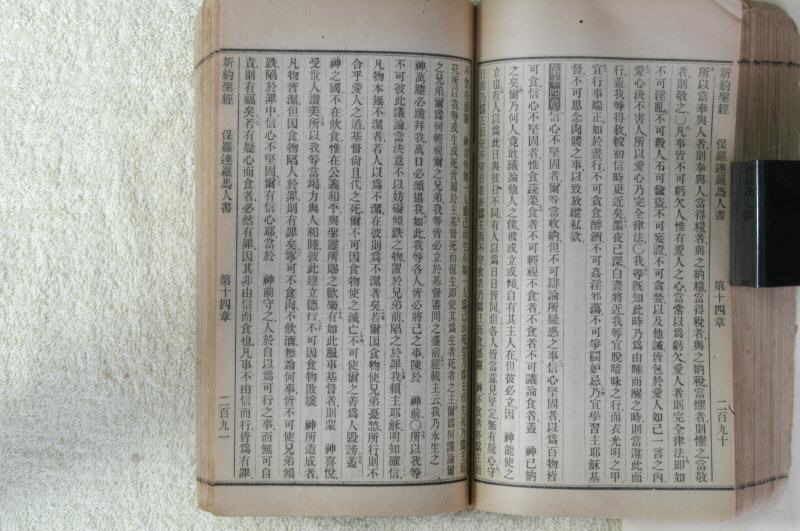 新約聖經 保羅達羅馬人書 第十四章 二百九十
所以當奉與人者則奉與人當得糧者與之納糧當得稅者與之納稅當懼者則懼之當敬
者則敬之〇凡事皆不可虧欠人惟有愛人之心當常以爲虧欠愛人者則完全律法卽如
不可淫亂不可殺人不可偸盜不可妄證不可貪婪以及他誡皆包於愛人如己一言之內
愛心決不害人所以愛心乃完全律法〇我等旣知此時乃爲由睡而醒之時則當遵此而
行蓋我等得救較初信時更近矣黑夜已深白晝將近我等宜脫暗昧之行而衣光明之甲
宜行事端正如於晝行不可貪食醉酒不可姦淫邪蕩不可爭鬪妒忌乃宜學習主耶穌基
督不可思念肉體之事以致放縱私欲
信心不堅固者爾等當收納但不可辯論所疑惑之事信心堅固者以爲百物皆
可食信心不堅固者惟食蔬菜食者不可輕視不食者不食者不可議論食者蓋 神已納
之矣爾乃何人竟敢議論他人之僕彼或立或傾自有其主人在但彼必立因 神能使之
立也有人以爲此日與彼日不同有人以爲日日皆同但各人皆當意見堅定無有疑心守
死所以我等或生或死皆屬於主基督死而復生卽使其爲生者死者之主爾爲何議論爾
之兄弟爾爲何輕視爾之兄弟我等皆必立於基督審問之臺前經載主云我乃永生之
神萬膝必跪拜我萬口必頌揚我如此我等各人皆必將己之事陳於 神前〇所以我等
不可彼此議論當決意不以妨礙傾跌之物置於兄弟前陷之於罪我賴主耶穌明知確信
凡物本無不潔者若人以爲不潔在彼則爲不潔者矣若爾因食物使兄弟憂愁所行則不
合乎愛人之道基督尙且代之死爾不可因食物使之滅亡不可使爾之善爲人毀謗蓋
神之國不在飲食惟在公義和平與聖靈所賜之歡樂有如此服事基督者則蒙 神喜悅
受世人讚美所以我等當竭力與人和睦彼此建立德行不可因食物敗壞 神所造成者
凡物皆潔但因食物陷人於罪則有罪矣寧可不食肉不飲酒無論何事皆不可使兄弟傾
跌陷於罪中信心不堅固爾有信心耶當於 神前守之人於自以爲可行之事而無可自
責則有福矣若有疑心而食者必然有罪因其非由信而食也凡事不由信而行皆爲有罪
新約聖經 保羅達羅馬人書 第十四章 二百九一